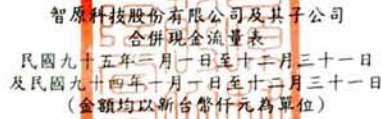 智原科技股份有限公司及其子公司
合併現金流量表
民國九十五年一月一日至十二月三十一日
及民國九十四年一月一日至十二月三十一日
(金額均以新台幣仟元為單位)